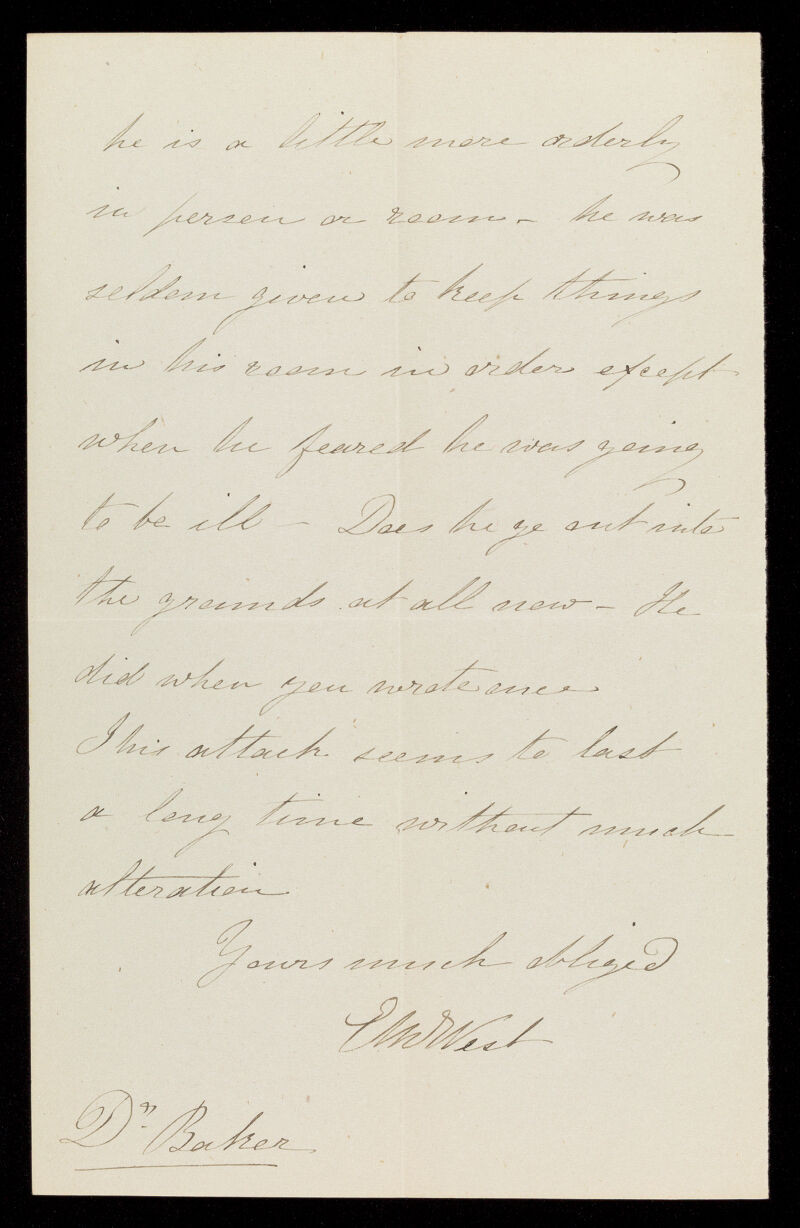 he is a little more orderly
in person or room - he was
seldom given to keep things
in his room in order except
when he feared he was going
to be ill - Does he go out into
the grounds at all now - He
did when you wrote once
This attack seems to last
a long time without much
alteration
Yours much obliged
West
Dr. Baker